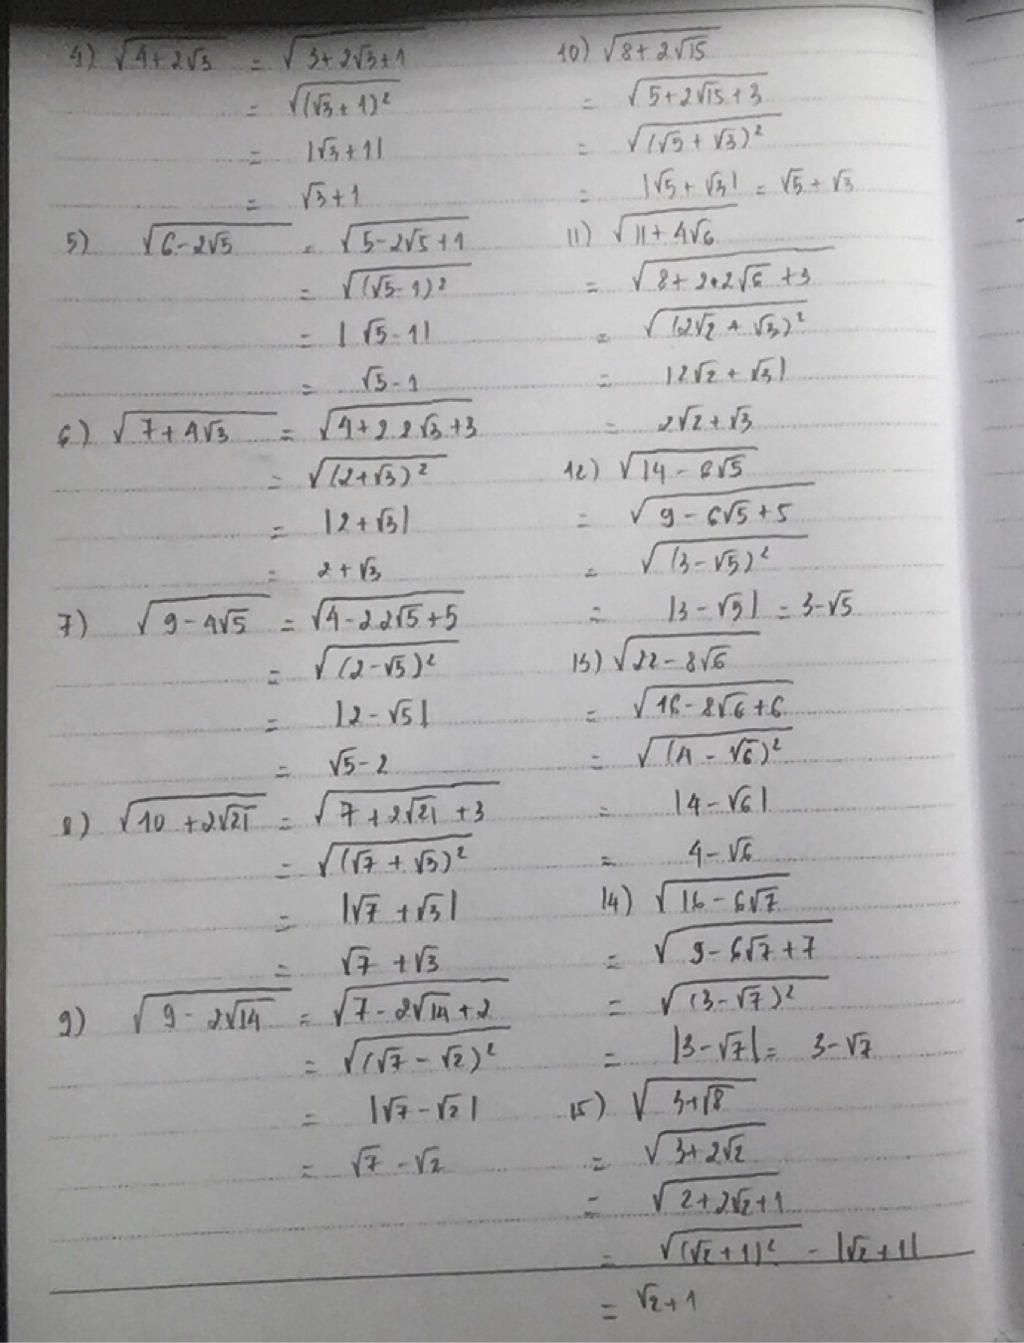 4) √(4+2√3) = √(3+2√3+1)
= √((√3+1)²)
= |√3+1|
= √3+1
5) √(6-2√5) = √(5-2√5+1)
= √((√5-1)²)
= |√5-1|
= √5-1
6) √(7+4√3) = √(4+2.2√3+3)
= √((2+√3)²)
= |2+√3|
= 2+√3
7) √(9-4√5) = √(4-2.2√5+5)
= √((2-√5)²)
= |2-√5|
= √5-2
8) √(10+2√21) = √(7+2√21+3)
= √((√7+√3)²)
= |√7+√3|
= √7+√3
9) √(9-2√14) = √(7-2√14+2)
= √((√7-√2)²)
= |√7-√2|
= √7-√2
10) √(8+2√15)
= √(5+2√15+3)
= √((√5+√3)²)
= |√5+√3| = √5+√3
11) √(11+4√6)
= √(8+2.2√6+3)
= √((2√2+√3)²)
= |2√2+√3|
= 2√2+√3
12) √(14-6√5)
= √(9-6√5+5)
= √((3-√5)²)
= |3-√5| = 3-√5
13) √(22-8√6)
= √(16-8√6+6)
= √((4-√6)²)
= |4-√6|
= 4-√6
14) √(16-6√7)
= √(9-6√7+7)
= √((3-√7)²)
= |3-√7| = 3-√7
15) √(3+√8)
= √(3+2√2)
= √(2+2√2+1)
= √((√2+1)²) = |√2+1|
= √2+1